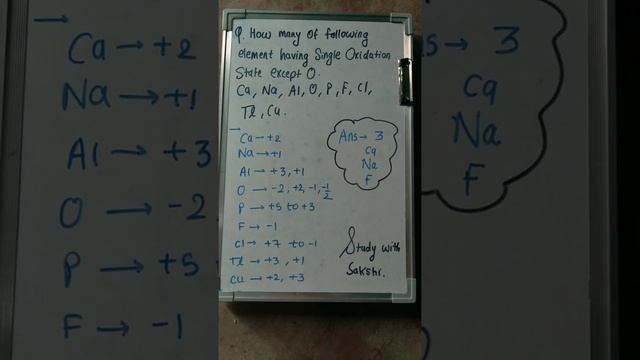 Q. How many of following
element having Single Oxidation
State except O.
Ca, Na, Al, O, P, F, Cl,
Tl, Cu.
→
Ca → +2
Na → +1
Al → +3, +1
O → -2, +2, -1, -1/2
P → +5 to +3
F → -1
Cl → +7 to -1
Tl → +3, +1
Cu → +2, +3
Ans → 3
Ca
Na
F
Study with
Sakshi.